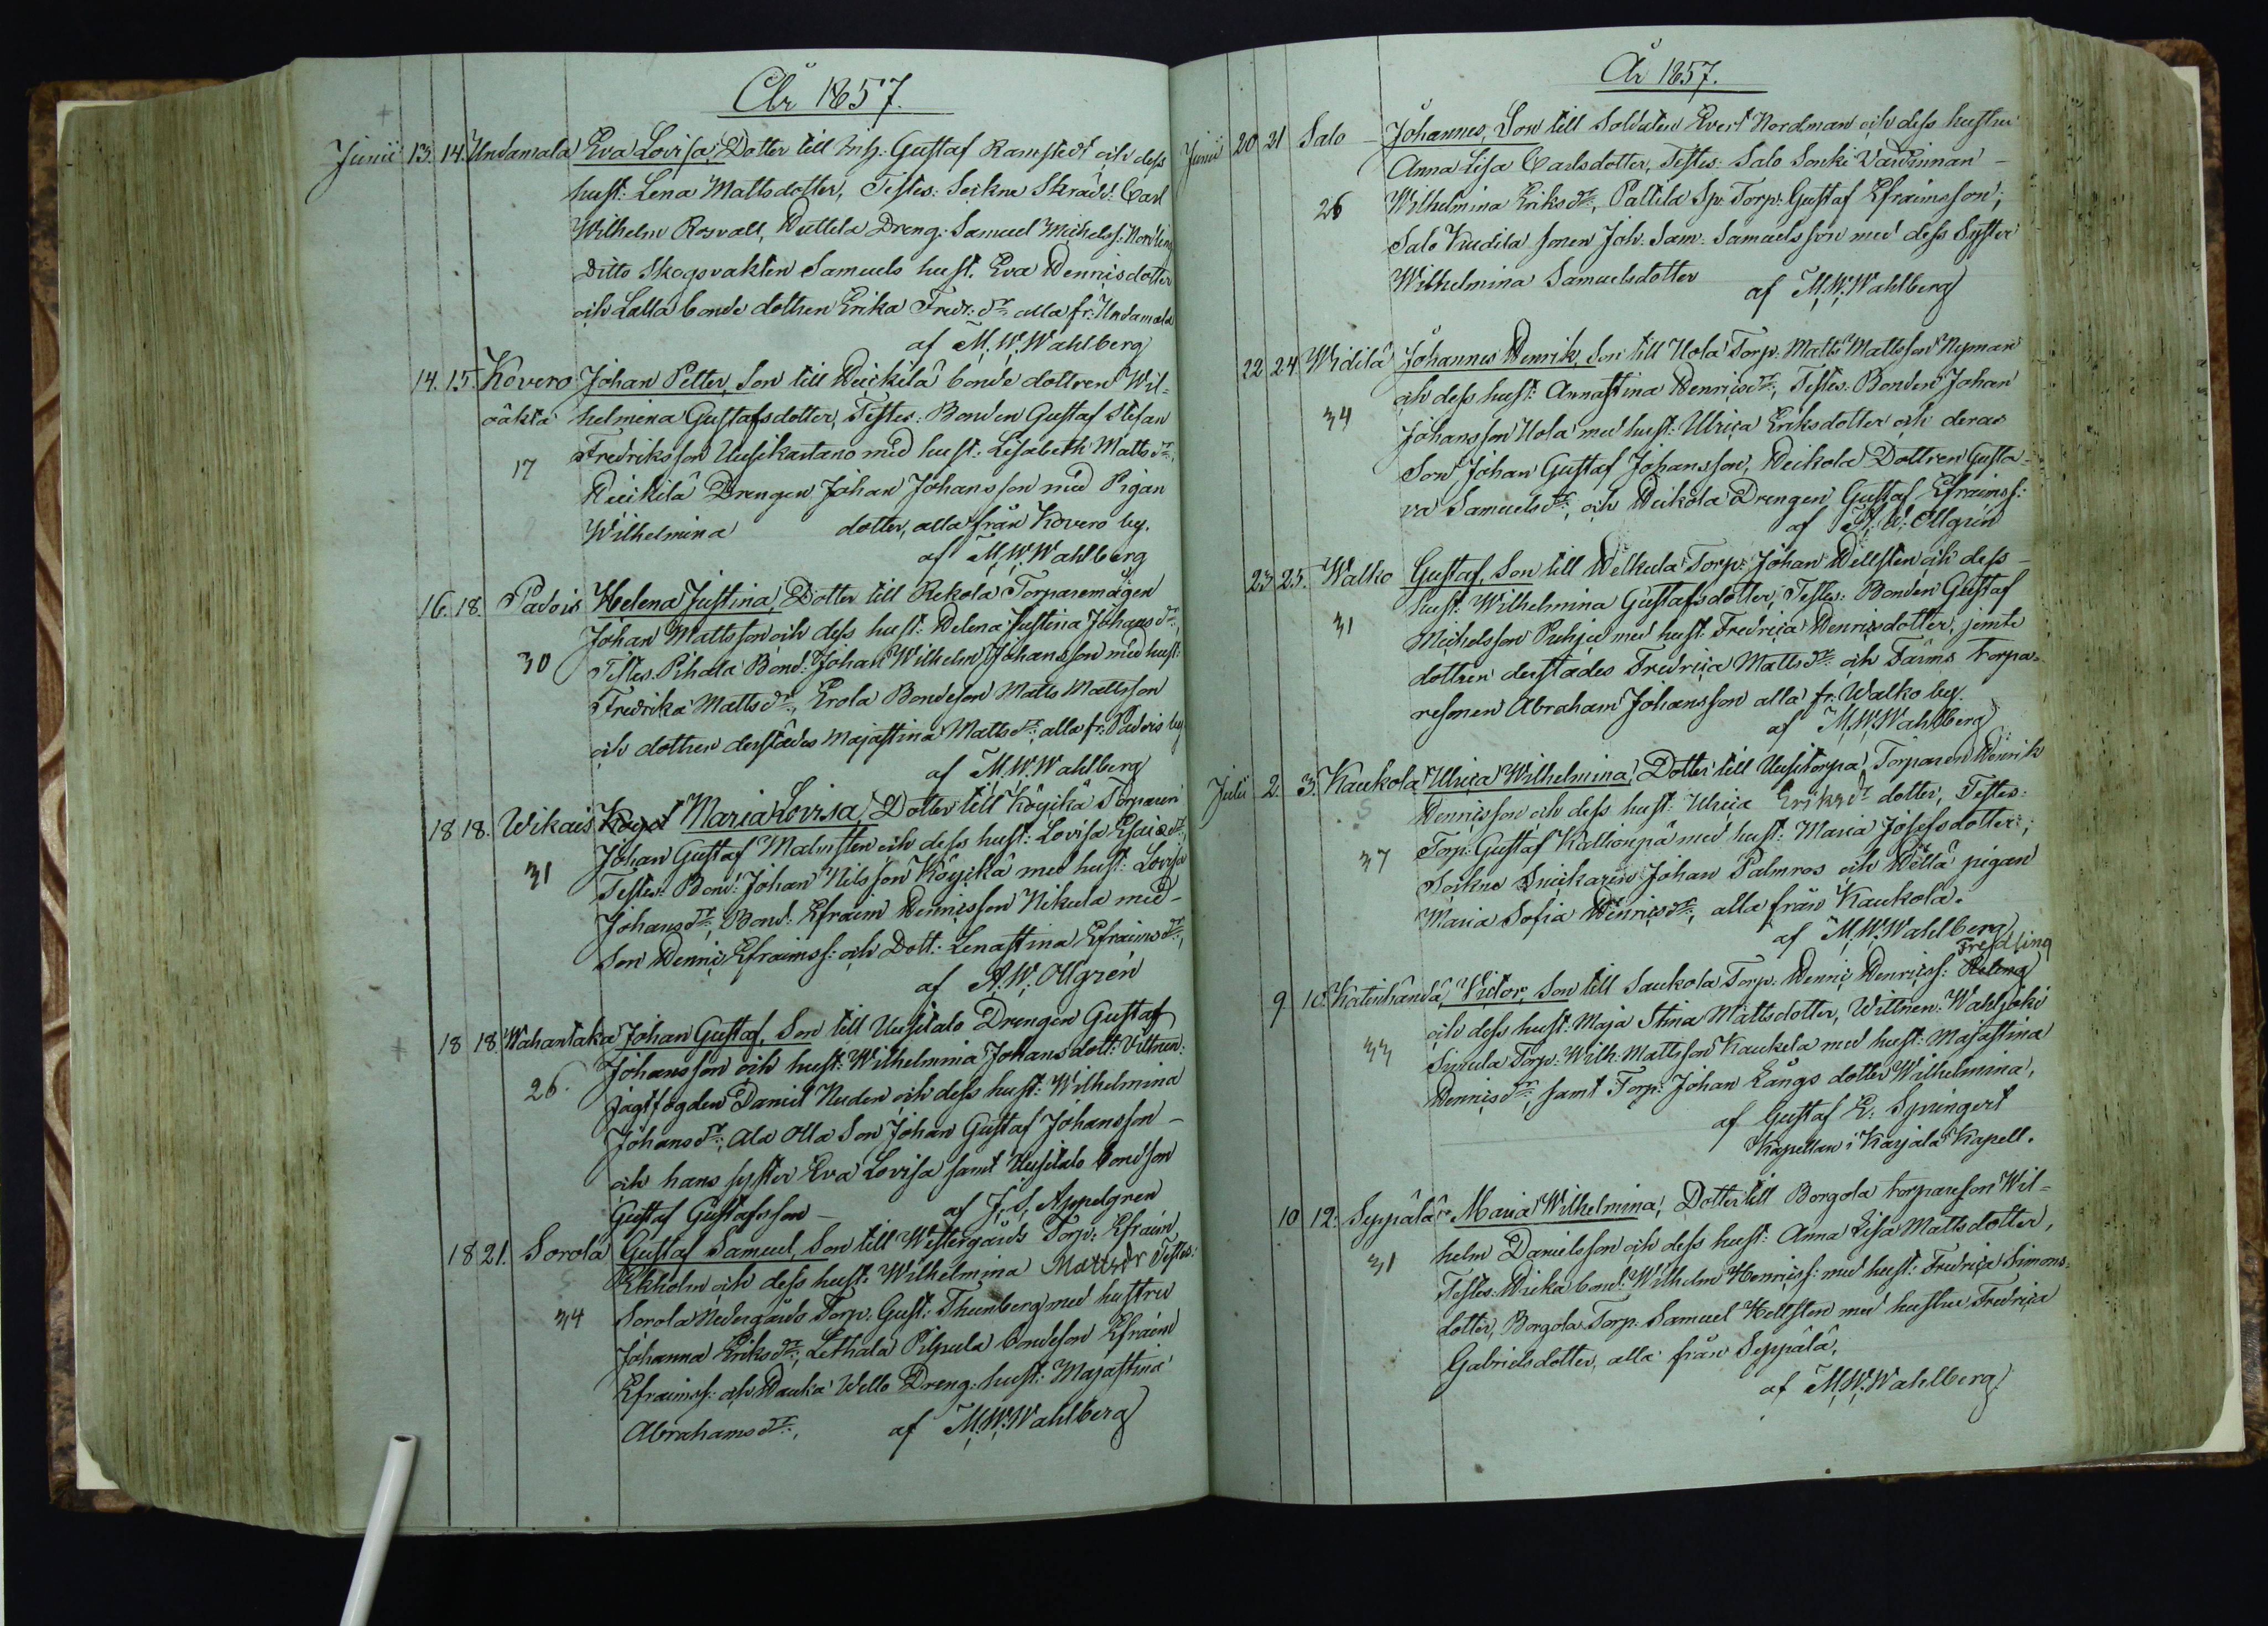 År 1857.
Junii 13. 14. Undamala Eva Lovisa, Dotter till Inh. Gustaf Ramstedt och dess
hust: Lena Mattsdotter, Testes: Sockne Skrädd: Carl
Wilhelm Rosvall, Huttela Dreng: Samuel Michelss: Nordling
Ditto Skogsvakten Samuels hust. Eva Henricsdotter
och Lalla bonde dottren Erika Fredr: dr: alla fr: Undamala
af M. W. Wahlberg
14. 15. Kovero Johan Petter, Son till Heickilä bonde dottren Wil-
oäkta helmina Gustafsdotter, Testes: Bonden Gustaf Stefan
17 Fredriksson Uusikartano med hust: Lisabeth Mattsdr:
Heickilä Drengen Johan Johansson med Pigan
Wilhelmina dotter, alla från Kovero by.
af M. W. Wahlberg
16. 18. Padois Helena Justina, Dotter till Rekola Torparemågen
Johan Mattsson och dess hust: Helena Justina Johansdr:,
30 Testes. Pihala Bond: Johan Wilhelm Johansson med hust:
Fredrika Mattsdr:, Erola Bondeson Matts Mattsson
och dottren derstädes Majastina Mattsdr: alla fr: Padois by
af M. W. Wahlberg
18 18. Wikais Maria Lovisa, Dotter till Köyikä Torparen
Johan Gustaf Malmsten och dess hust: Lovisa Esaiædr:,
31 Testes: Bond: Johan Nilsson Köyikä med hust: Lovisa
Johansdr:, Bond: Efraim Henricsson Nikula med
Son Henric Efraimss: och Dott: Lenastina Efraimsdr:,
af A. W. Ollgrén
18 18. Wahantaka Johan Gustaf, Son till Uusitalo Drengen Gustaf
Johansson och hust: Wilhelmina Johansdott: Vittnen:
26. Jagtfogden Daniel Nuden och dess hust: Wilhelmina
Johansdr:, Ala Olla Son Johan Gustaf Johansson
och hans syster Eva Lovisa samt Uusitalo bondson
Gustaf Gustafsson af J. S. Appelgren
18 21. Sorola Gustaf Samuel, Son till Westergårds Torp: Efraim
Ekholm och dess hust: Wilhelmina Mattsdr Testes:
34 Sorola Nedergårds Torp: Gust: Thunberg med hustru
Johanna Eriksdr:, Lethala Pilpula bondeson Efraim
Efraimss: och Hauka Wello Dreng: hust: Majastina
Abrahamsdr:, af M. W. Wahlberg
År 1857.
Junii 20 21 Salo Johannes, Son till Soldaten Evert Nordman och dess hustru
Anna Lisa Carlsdotter, Testes: Salo Sonki Värdinnan
26 Wilhelmina Eriksdr:, Pattila Sp: Torp: Gustaf Efraimsson,
Salo Kudila sonen Joh: Sam: Samuelsson med dess Syster
Wilhelmina Samuelsdotter
af M. W. Wahlberg
22 24 Widilä Johannes Henrik, Son till Uola Torp: Matts Mattsson Nyman
och dess hust: Annastina Henricsdr:, Testes: Bonden Johan
34 Johansson Uola med hust: Ulrica Eriksdotter och deras
Son Johan Gustaf Johansson, Heikola Dottren Gusta-
va Samuelsdr: och Heikola Drengen Gustaf Efraimss:
af A. W. Ollgrén
23 25. Walko Gustaf, Son till Welkula Torp: Johan Hellsten och dess
hust: Wilhelmina Gustafsdotter, Testes: Bonden Gustaf
31 Michelsson Puhja med hust: Fredrica Henricsdotter, jemte
dottren derstädes Fredrica Mattsdr: och Tarms torpa-
resonen Abraham Johansson alla fr: Walko by.
af M. W. Wahlberg
Julii 2. 3. Kaukola Ulrica Wilhelmina, Dotter till Uusitorpa Torparen Henrik
Henricsson och dess hust: Ulrica Eriksdr dotter, Testes:
37 Torp: Gustaf Kallionpä med hust: Maria Josefsdotter,
Sockne Snickaren Johan Palmros och Höllä pigan
Maria Sofia Henricsdr:, alla från Kaukola.
af M. W. Wahlberg
Fredling
9 10. Katinhändä Victor, Son till Saukola Torp. Henric Henricss:
och dess hust: Maja Stina Mattsdotter, Wittnen: Wahljoki
33 Simula Torp: Wilh: Mattsson Kaukela med hust: Majastina
Henricsdr:, samt Torp: Johan Långs dotter Wilhelmina,
af Gustaf E: Springert
Kapellan i Karjala Kapell.
10 12. Seppälä Maria Wilhelmina, Dotter till Borgola torpareson Wil-
helm Danielsson och dess hust: Anna Lisa Mattsdotter,
31 Testes: Wicka bond: Wilhelm Henricss: med hust: Fredrica Simons-
dotter, Borgola Torp: Samuel Hellsten med hustru Fredrica
Gabrielsdotter, alla från Seppälä,
af M. W. Wahlberg.